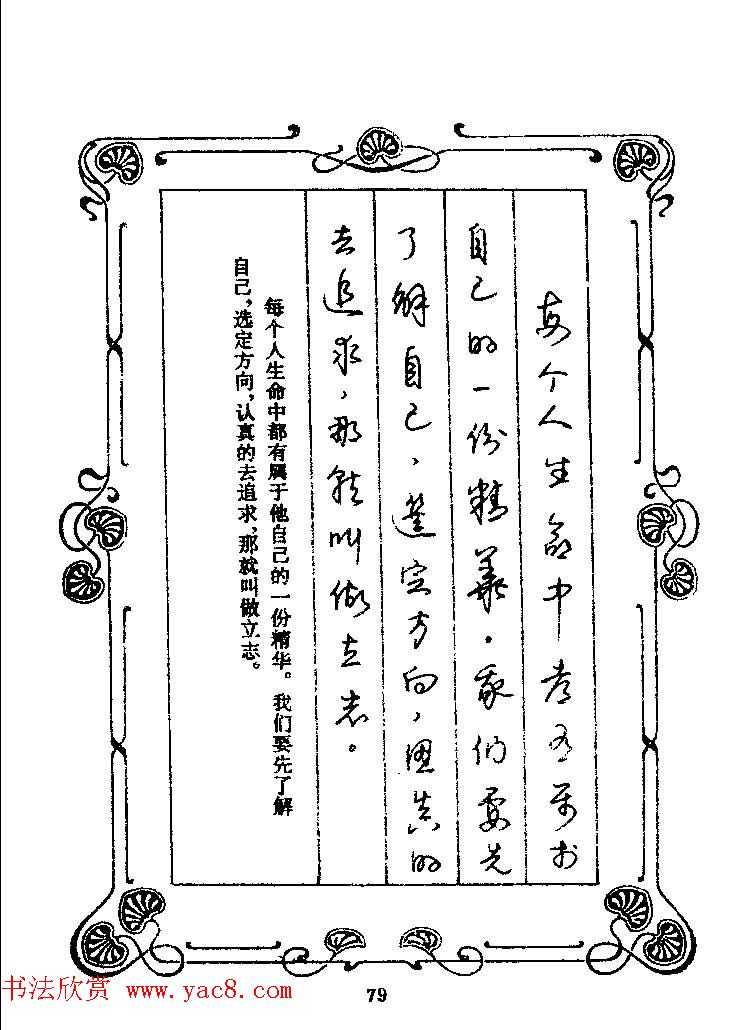 每个人生命中都有属于
自己的一份精華。我们要先
了解自己，選定方向，認真的
去追求，那就叫做立志。
每个人生命中都有属于他自己的一份精华。我们要先了解
自己，选定方向，认真的去追求，那就叫做立志。
书法欣赏 www.yac8.com
79